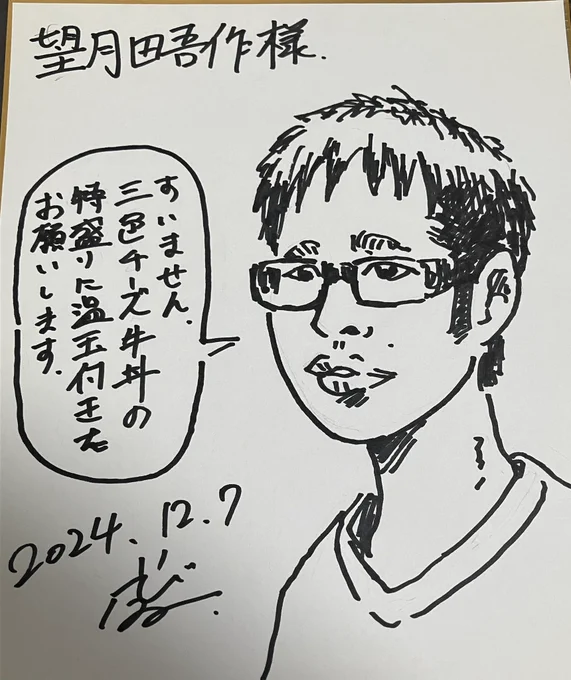 望月田吾作様.
すいません.
三色チーズ牛丼の
特盛りに温玉付きを
お願いします.
2024.12.7